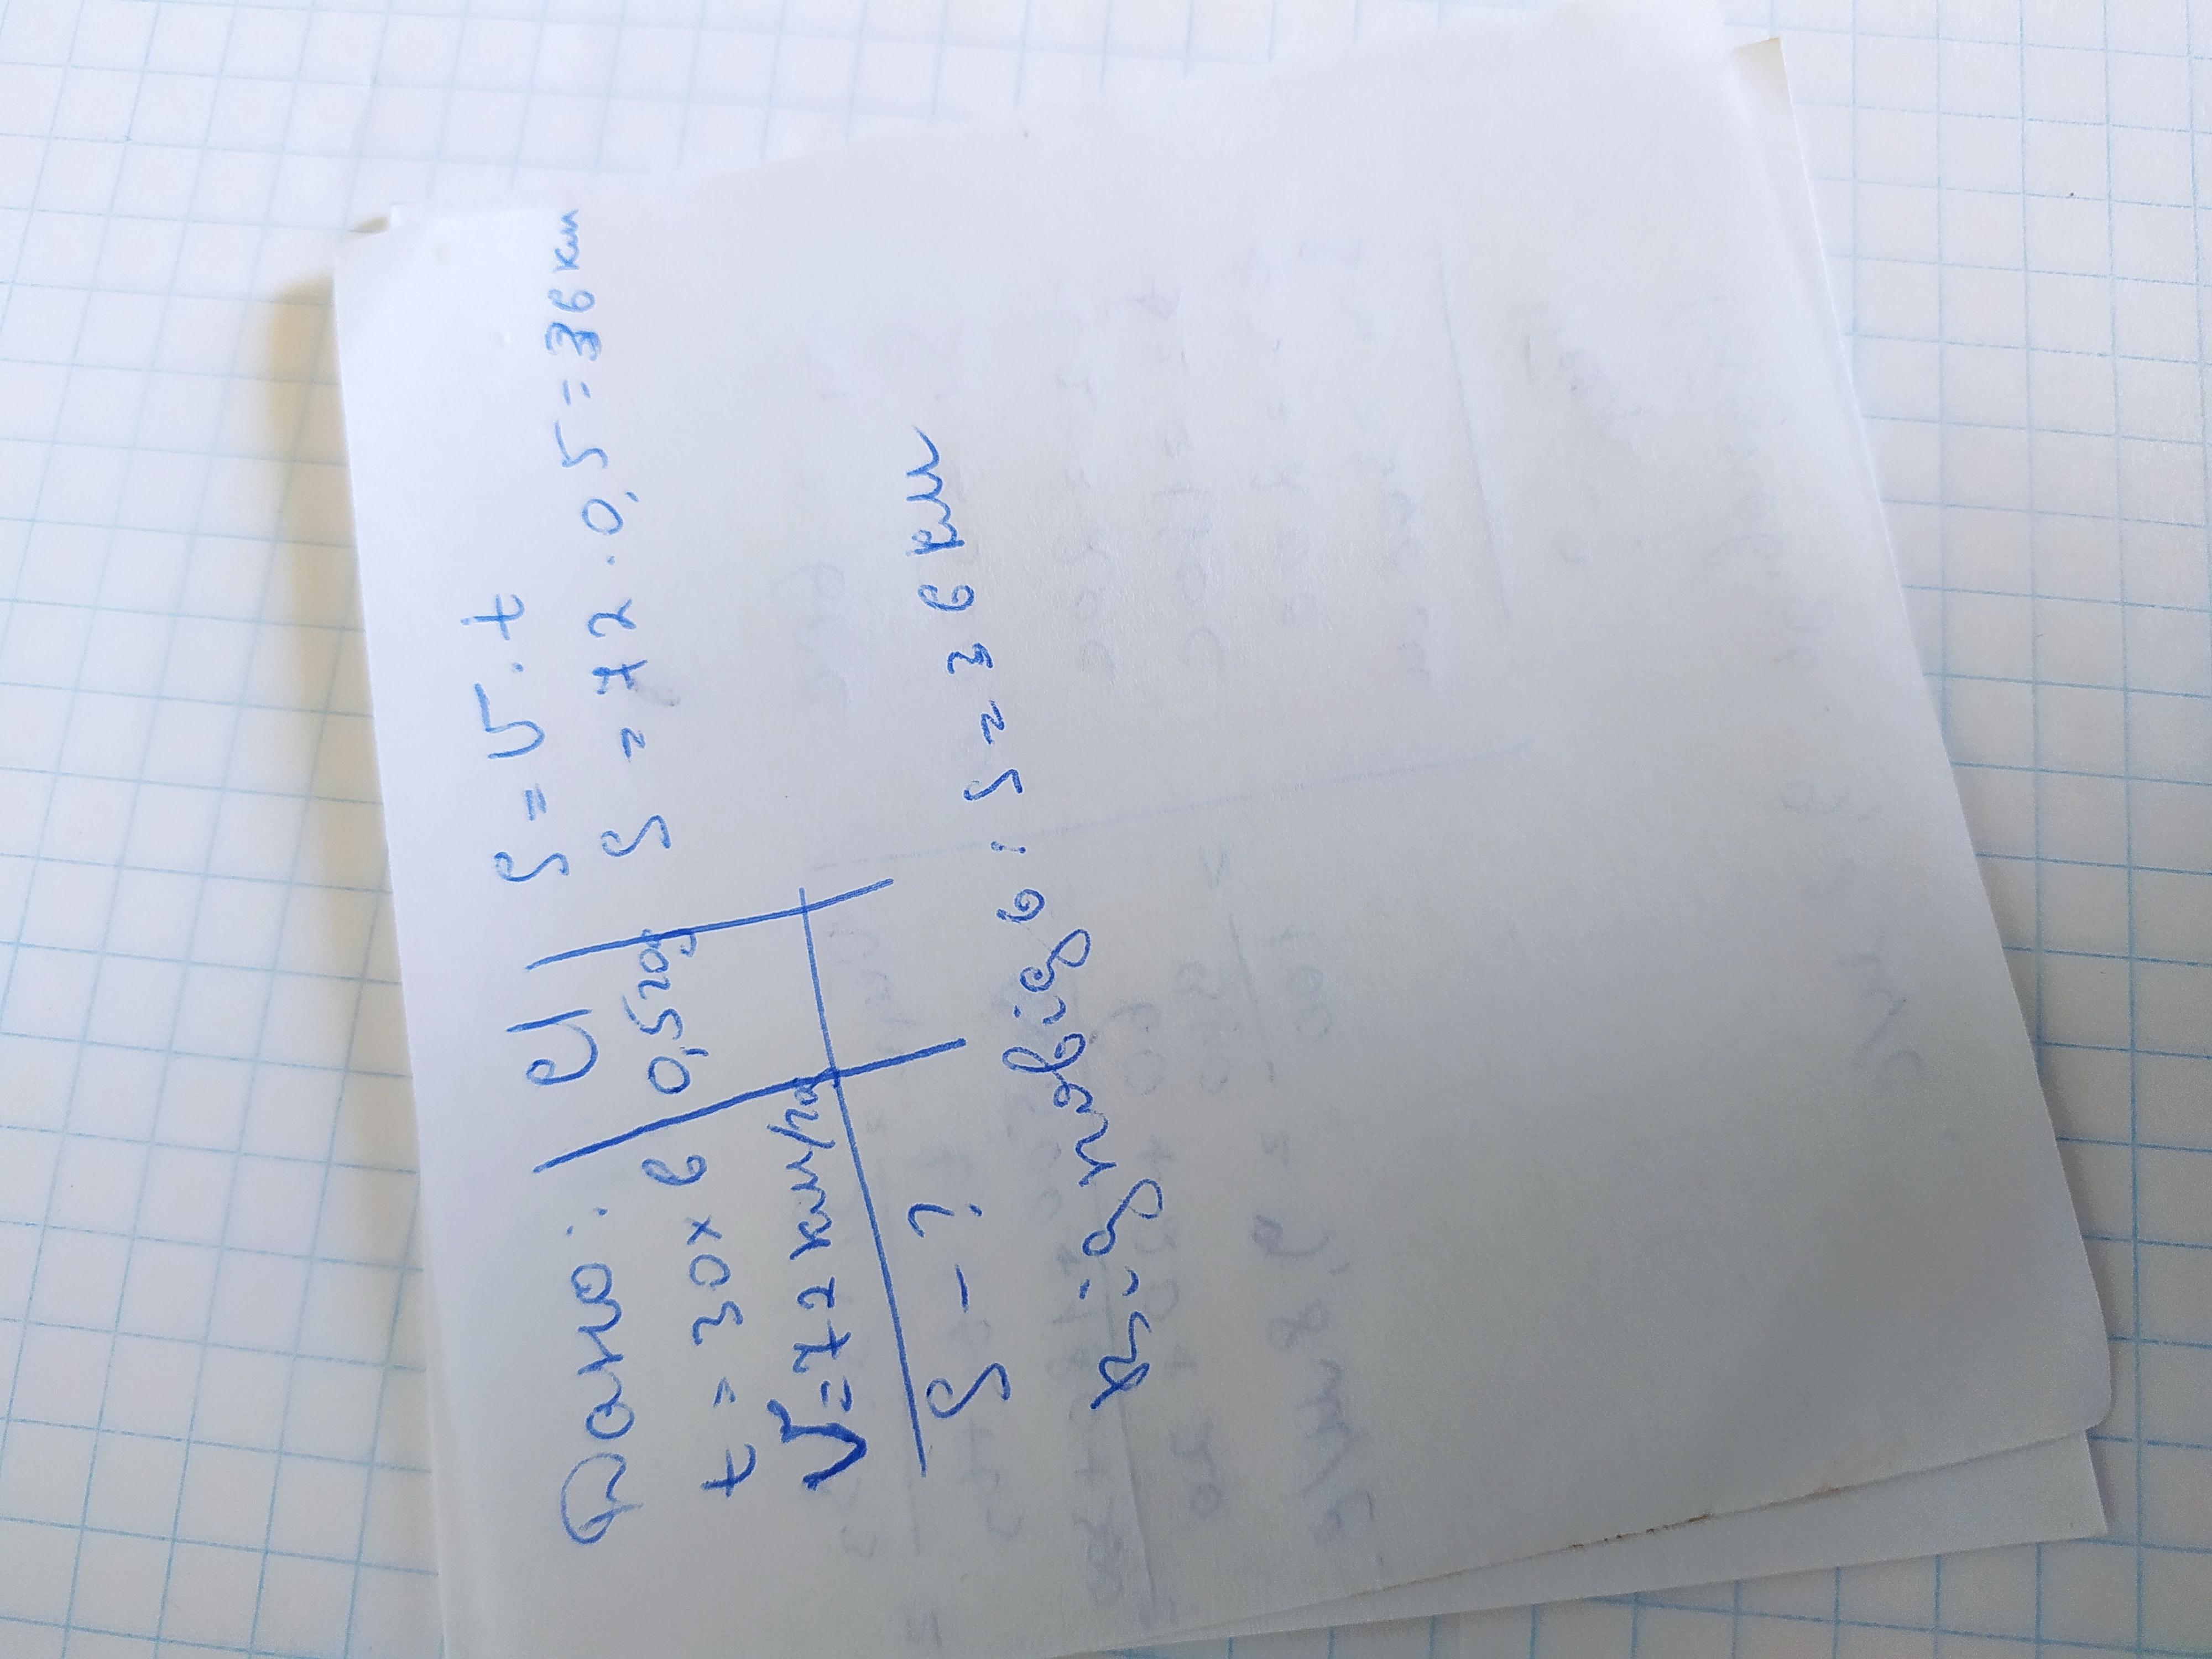 Дано: | СІ | S = V · t
t = 30 хв | 0,5 год | S = 72 · 0,5 = 36 км
V = 72 км/год
S - ?
Відповідь: S = 36 км